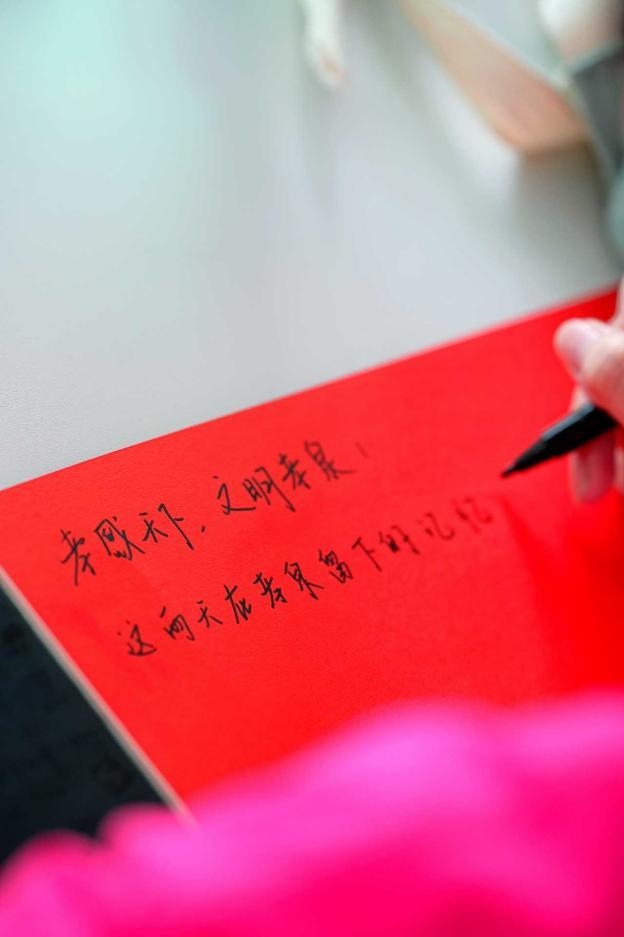 孝感天下，文明孝泉！
这两天在孝泉留下的记忆